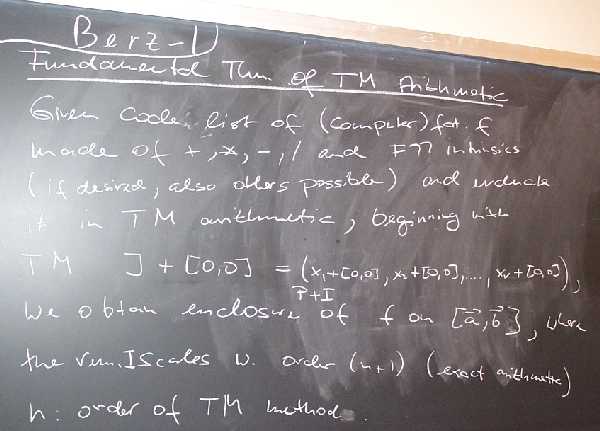 Berz-1
Fundamental Thm. of TM Arithmetic
Given Code list of (computer) fct. f
made of +, x, -, / and F77 intrinsics
(if desired, also others possible) and evaluate
it in TM arithmetic, beginning with
TM J + [0,0] = (x₁+[0,0], x₂+[0,0], ..., xᵥ+[0,0]),
P+I
We obtain enclosure of f on [a⃗,b⃗], where
the rem. I scales w. order (n+1) (exact arithmetic)
n: order of TM method.